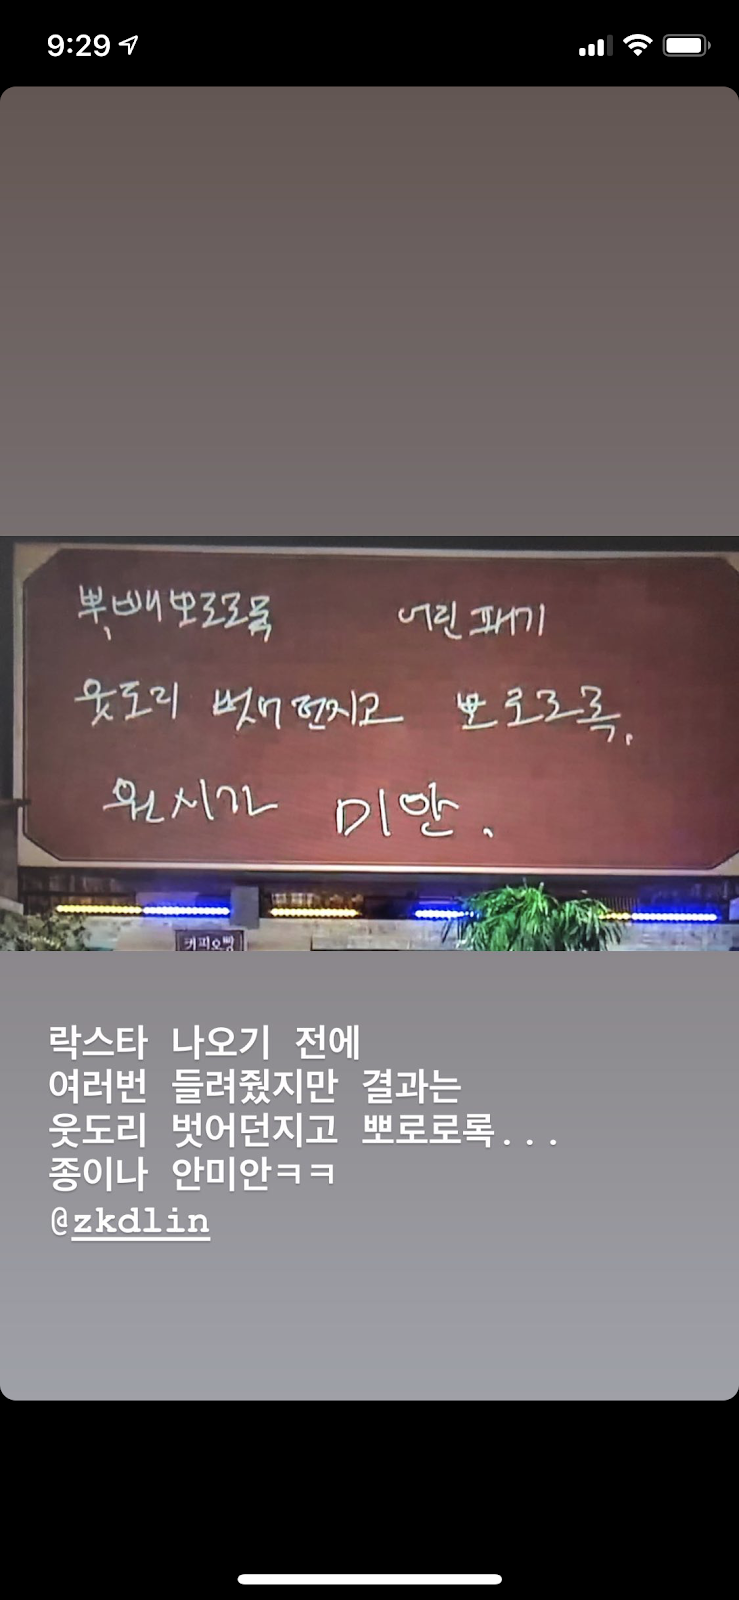 9:29
뿍,빼뽀로로록 어린패기
웃도리 벗어던지고 뽀로로록.
원시가 미안.
커피오빵
락스타 나오기 전에
여러번 들려줬지만 결과는
웃도리 벗어던지고 뽀로로록...
종이나 안미안ㅋㅋ
@zkdlin